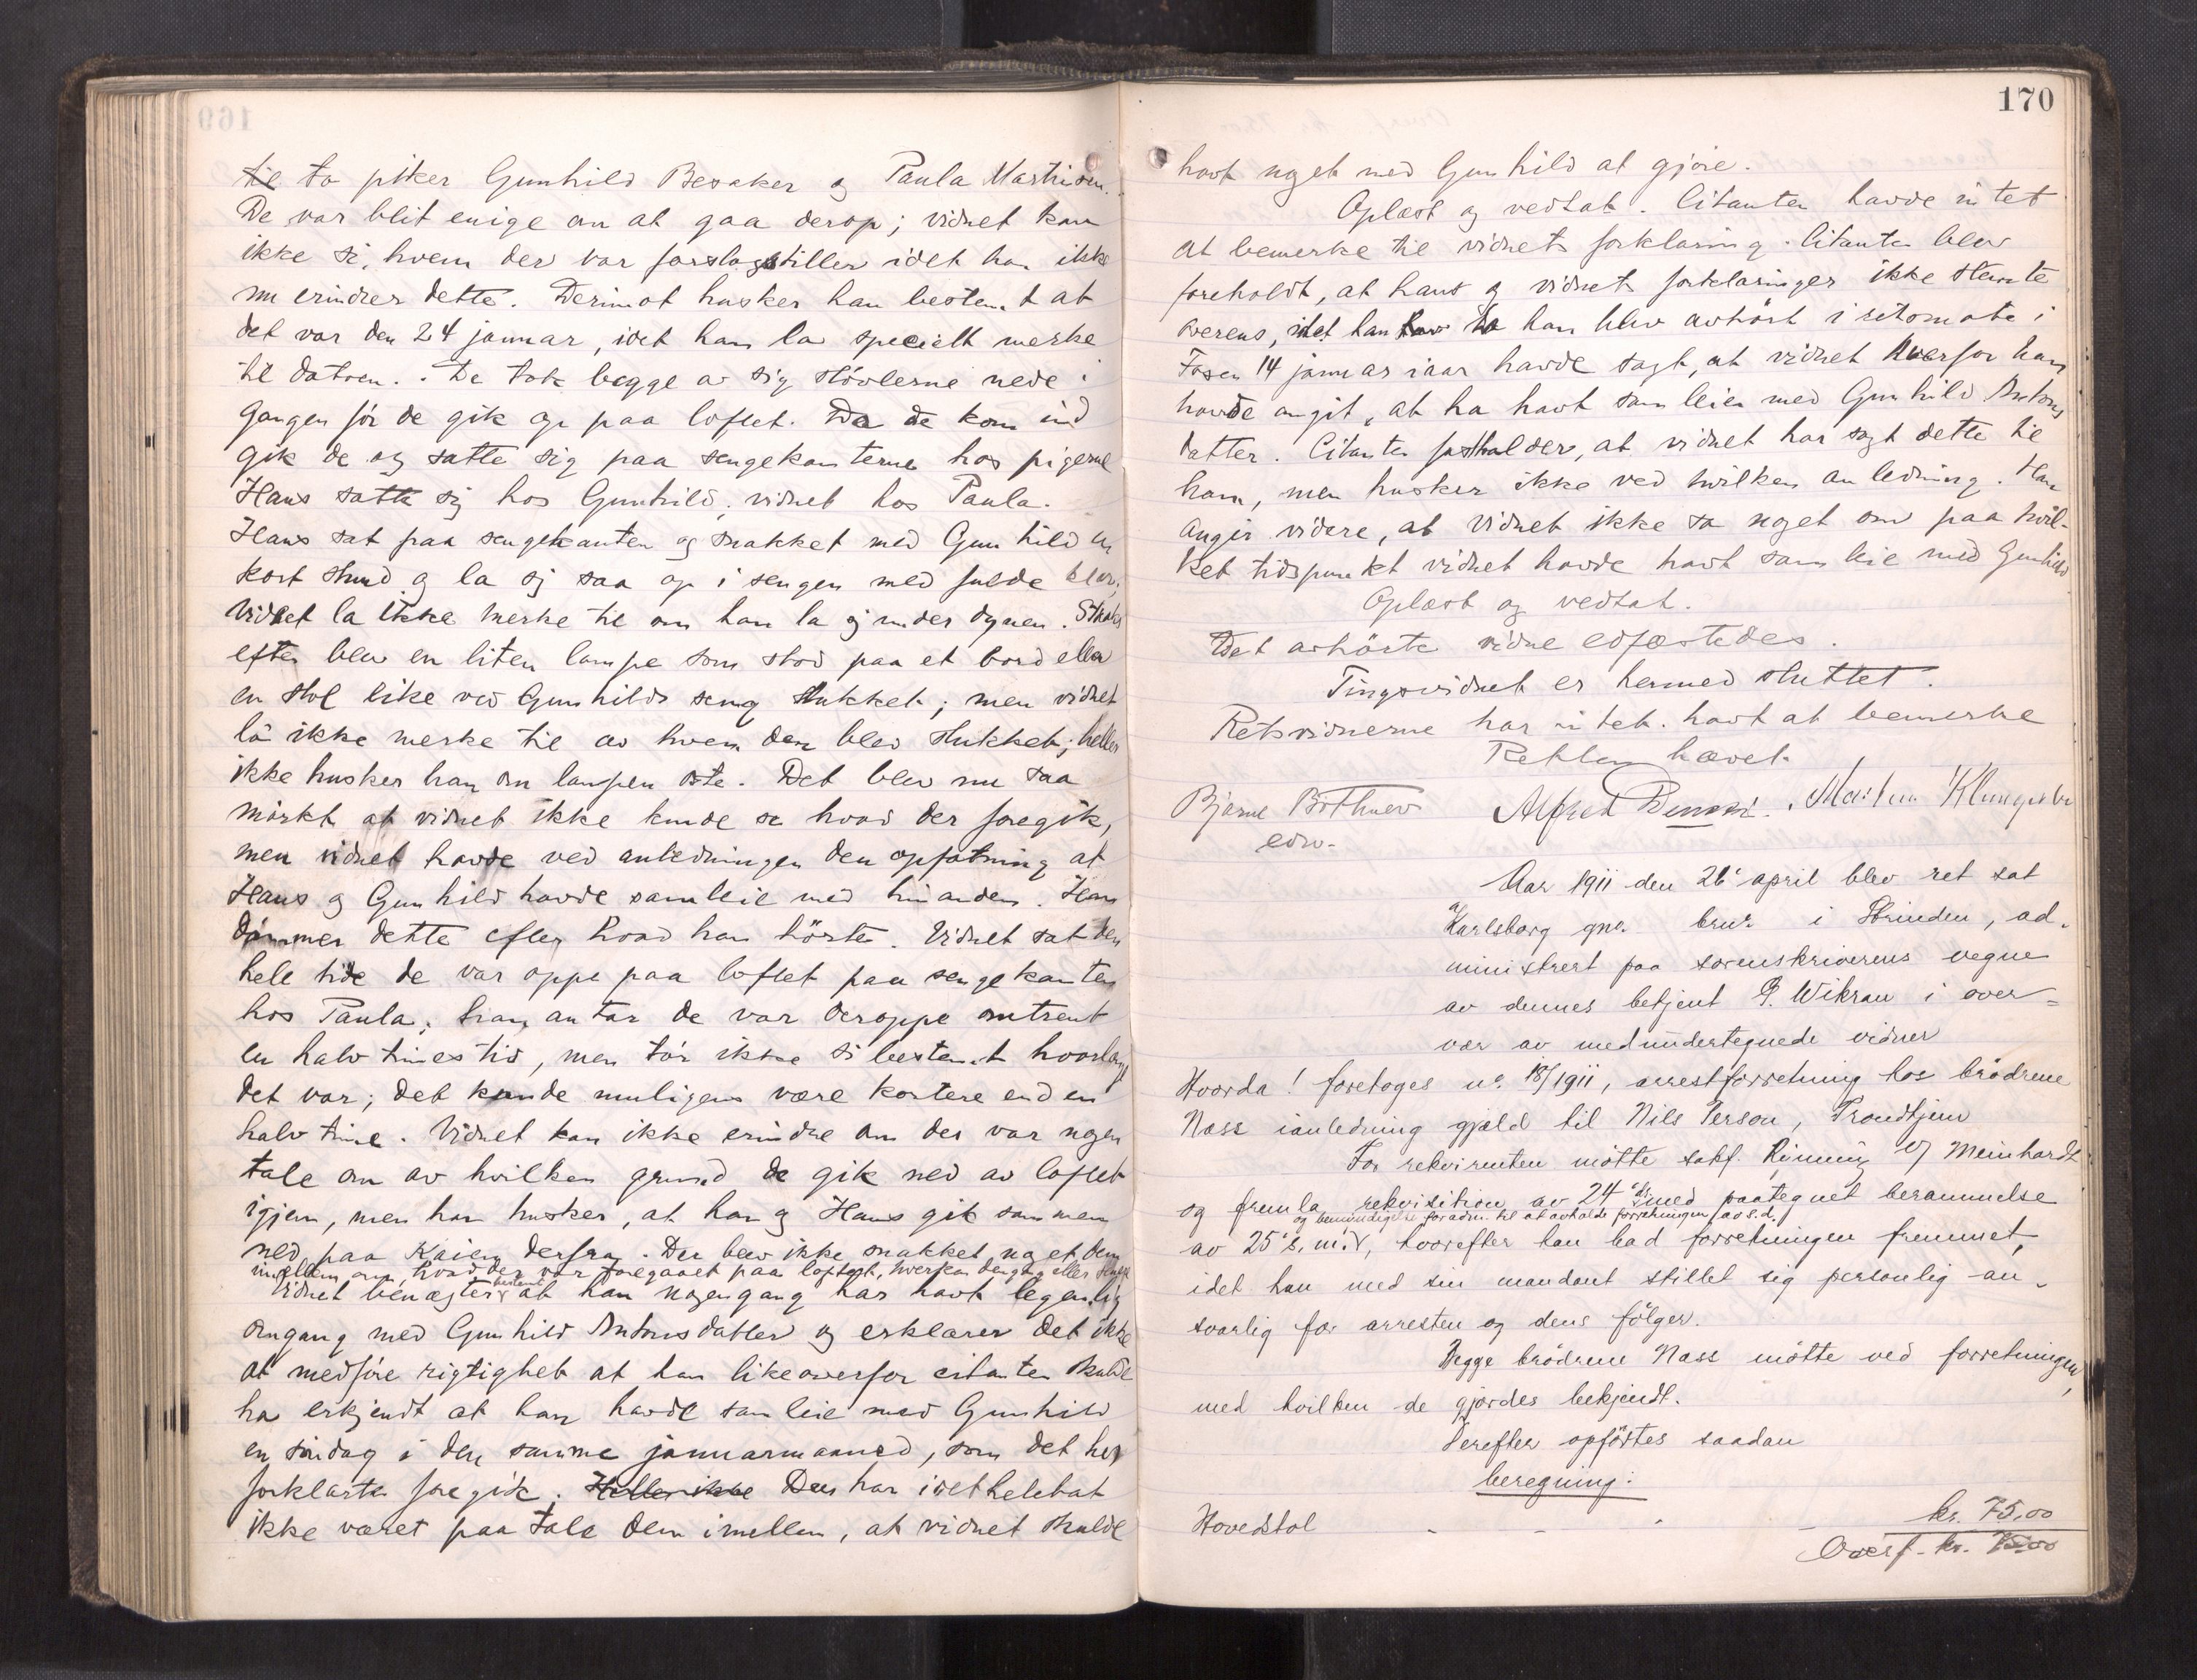 169
til to piker Gunhild Besaker og Paula Martinsen.
De var blit enige om at gaa derop; vidnet kan
ikke si, hvem der var forslagsstiller idet han ikke
nu erindrer dette. Derimot husker han bestemt at
det var den 24 januar, idet han la specielt merke
til datoen. De tok begge av sig støvlerne nede i
gangen før de gik op paa loftet. Da de kom ind
gik de og satte sig paa sengekanterne hos pigerne
Hans satte sig hos Gunhild, vidnet hos Paula.
Hans sat paa sengekanten og snakket med Gunhild en
kort stund og la sig saa op i sengen med fulde klær;
vidnet la ikke merke til om han la sig under dynen. Straks
efter blev en liten lampe som stod paa et bord eller
en stol like ved Gunhilds seng slukket; men vidnet
la ikke merke til av hvem den blev slukket; heller
ikke husker han om lampen oste. Det blev nu saa
mørkt at vidnet ikke kunde se hvad der foregik,
men vidnet havde ved anledningen den opfatning at
Hans og Gunhild havde samleie med hinanden. Han
dømmer dette efter hvad han hørte. Vidnet sat den
hele tide de var oppe paa loftet paa sengekanten
hos Paula; han antar de var deroppe omtrent
en halv times tid, men tør ikke si bestemt hvorlang
det var; det kunde muligens være kortere end en
halv time. Vidnet kan ikke erindre om der var nogen
tale om av hvilken grund de gik ned av loftet
igjen, men han husker, at han og Hans gik sammen
ned paa Kaien derfra. Der blev ikke snakket noget dem
imellem om, hvad der var foregaaet paa loftet, hverken dengang eller senere
Vidnet benægter bestemt at han nogengang har havt legemlig
omgang med Gunhild Antonsdatter og erklærer det ikke
at medføre rigtighet at han likeoverfor citanten skulde
ha erkjendt at han havde samleie med Gunhild
en søndag i den samme januarmaaned, som det her
forklarte foregik. Heller ikke Der har idethele tat
ikke været paa tale dem imellem, at vidnet skulde
170
havt noget med Gunhild at gjøre.
Oplæst og vedtat. Citanten havde intet
at bemerke til vidnets forklaring. Citanten blev
foreholdt, at hans og vidnets forklaringer ikke stemte
overens, idet han da han blev avhørt i retsmøte i
Fosen 14 januar iaar havde sagt, at vidnet overfor ham
havde angit, at ha havt samleie med Gunhild Antons
datter. Citanten fastholder, at vidnet har sagt dette til
ham, men husker ikke ved hvilken anledning. Han
angir videre, at vidnet ikke sa noget om paa hvil-
ket tidspunkt vidnet havde havt samleie med Gunhild
Oplæst og vedtat.
Det avhørte vidne edfæstedes.
Tingsvidnet er hermed sluttet.
Retsvidnerne har intet havt at bemerke
Retten hævet.
Bjarne Bothner Alfred Martin
edv.
Aar 1911 den 26' april blev ret sat
å Karlsborg gno. brno. i Strinden, ad-
ministrert paa sorenskriverens vegne
av dennes betjent P. Wikran i over=
vær av medundertegnede vidner
Hvorda! foretoges no. 18/1911, arrestforretning hos brødrene
Næss ianledning gjæld til Nils Person, Trondhjem
For rekvirenten møtte sakf. Rinning v/ Meinhardt
og fremla rekvisition av 24 ds med paategnet berammelse
og bemyndigelse for adm. til at avholde forretningen av s.d.
av 25' s.m., hvorefter han bad forretningen fremmet,
idet han med sin mandant stillet sig personlig an-
svarlig for arresten og dens følger.
Begge brødrene Næss møtte ved forretningen,
med hvilken de gjordes bekjendt.
Derefter opførtes saadan
beregning:
Hovedstol - - - - kr. 75,00
Overf. kr. 75,00